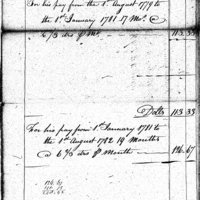 For his pay from the 1st August 1779 to
the 1st January 1781 17 Mos. @
6 2/3 drs. Pr Mo. 113.33
Dolls 113.33
For his pay from 1st January 1781 to
the 1st August 1782 19 Months
@ 6 2/3 drs Pr Month 126.67
126.67